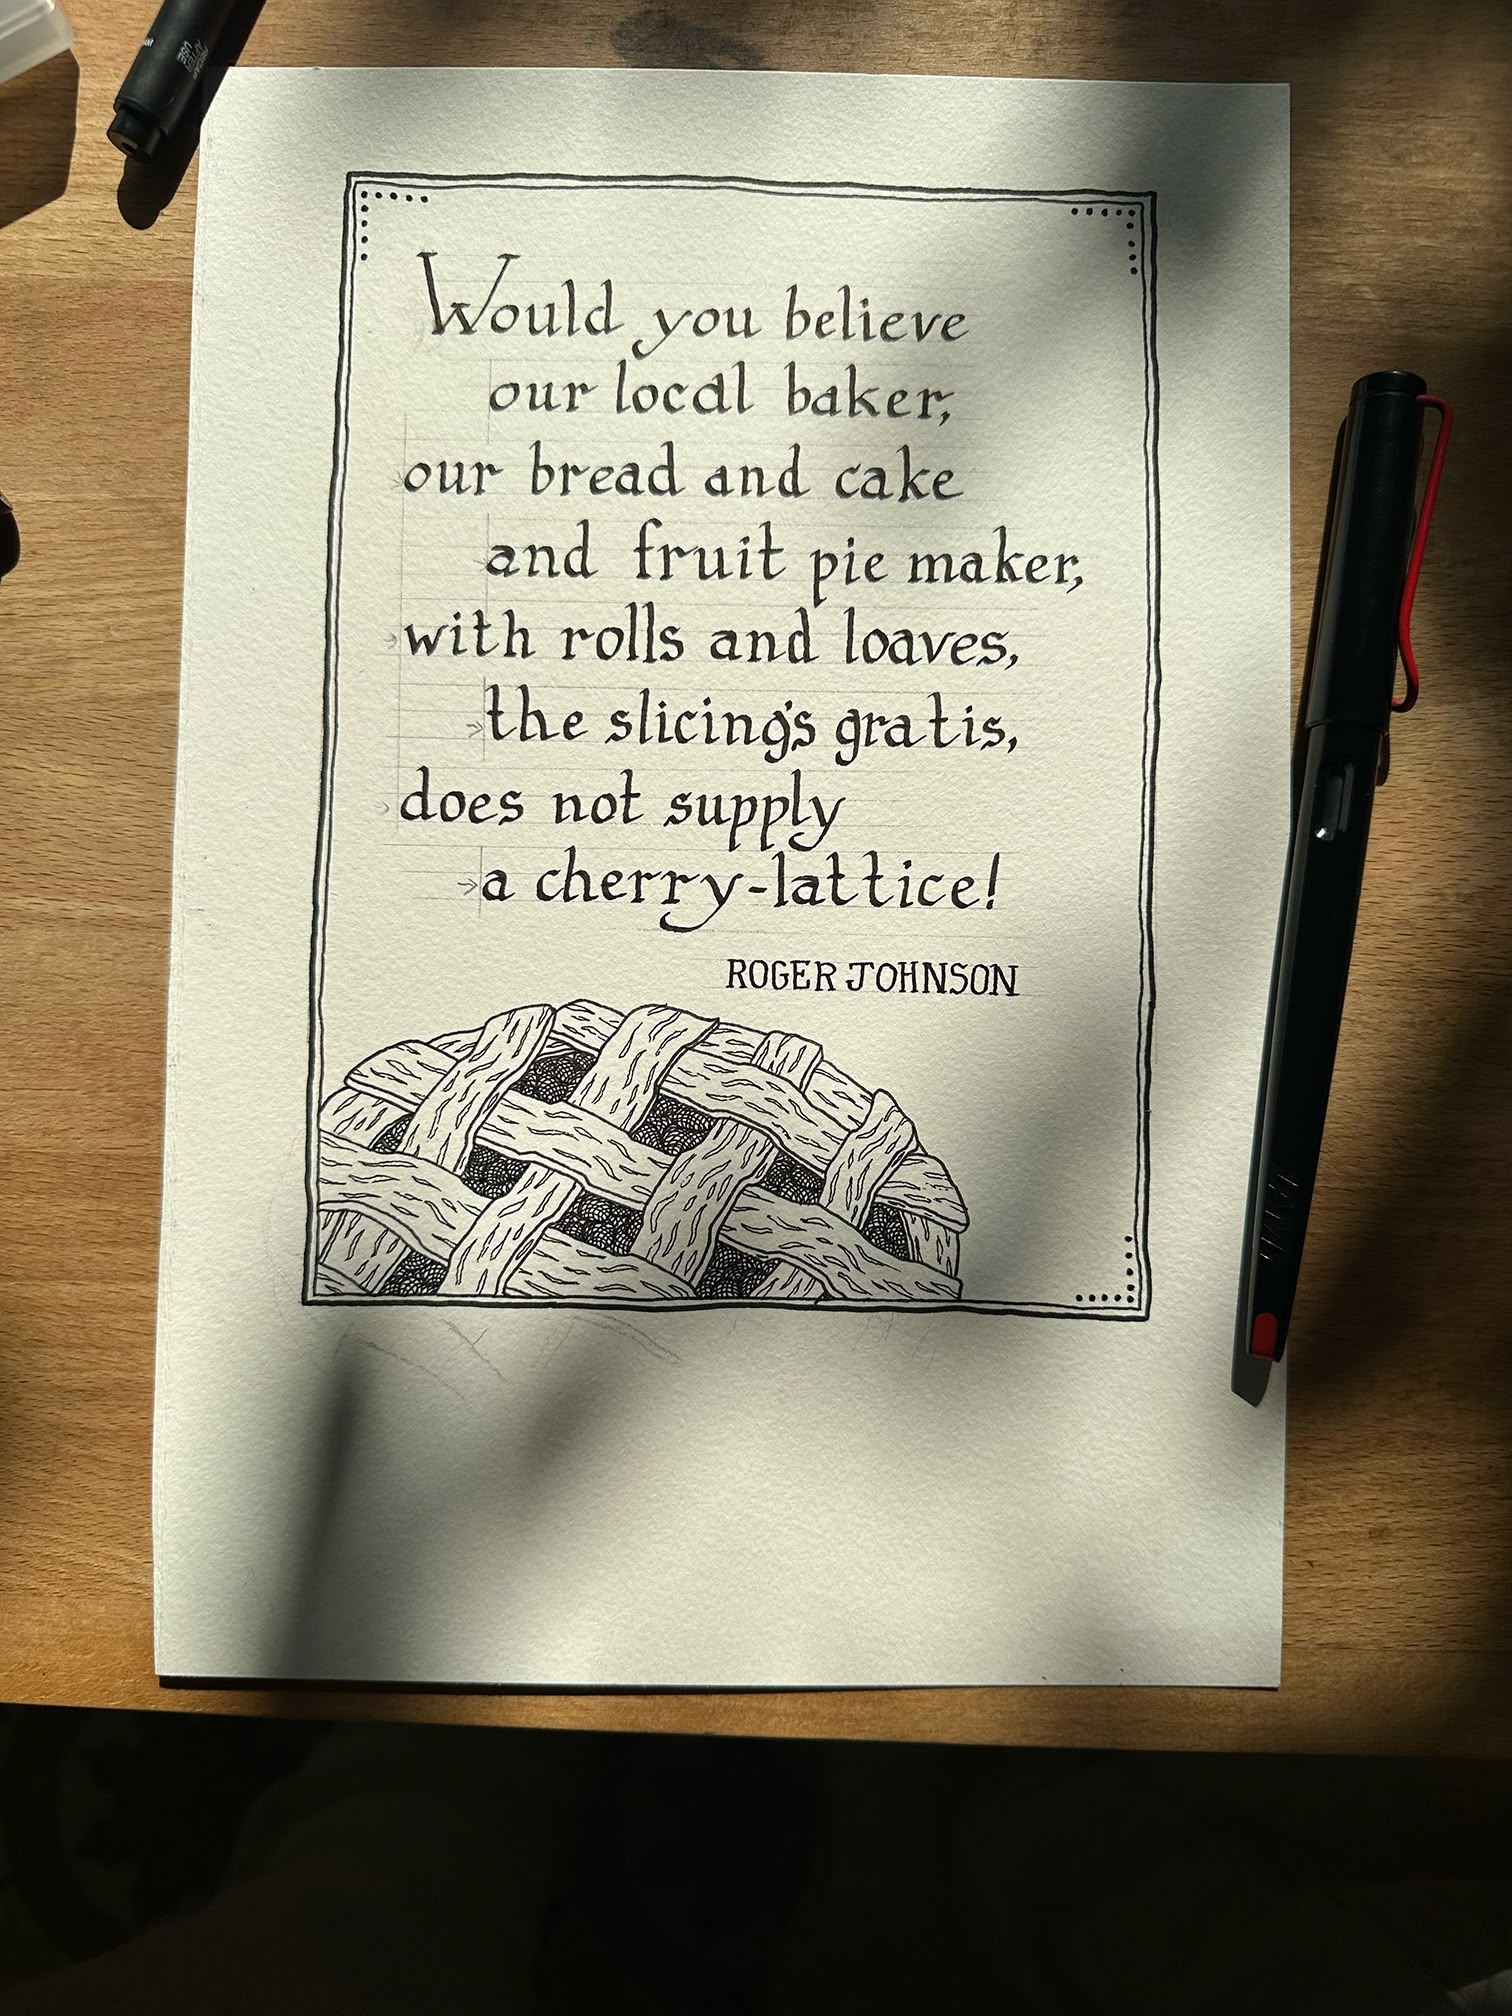 Would you believe
our local baker,
our bread and cake
and fruit pie maker,
with rolls and loaves,
the slicing's gratis,
does not supply
a cherry-lattice!
ROGER JOHNSON